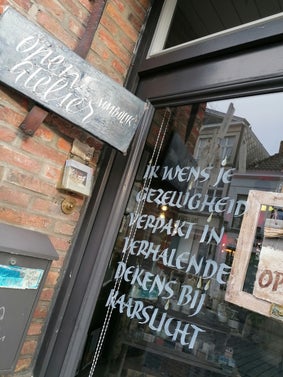 open
atelier
IK WENS JE
GEZELLIGHEID
VERPAKT IN
VERHALENDE
DEKENS BIJ
KAARSLICHT
OP